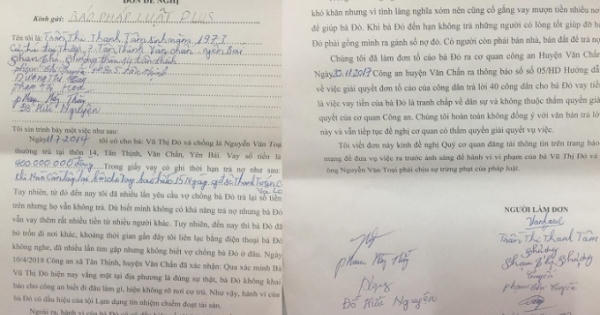 ĐƠN ĐỀ NGHỊ
Kính gửi: BÁO PHÁP LUẬT PLUS
Tên tôi là: Trần Thị Thanh Tâm sinh năm 1973
phạm Thị
Dương Thị
phạm Thị
phạm Thị Thủy
Đỗ Hữu Nguyện
Tôi xin trình bày một việc như sau:
Ngày 11.7.2014 tôi có cho bà: Vũ Thị Đó và chồng là Nguyễn Văn Toại
thường trú tại thôn 14, Tân Thịnh, Văn Chấn, Yên Bái. Vay số tiền là
400.000.000 đồng. Trong giấy vay có ghi thời hạn trả nợ như sau:
Tuy nhiên, từ đó đến nay tôi đã nhiều lần yêu cầu vợ chồng bà Đó trả lại số tiền
trên nhưng họ vẫn không trả. Dù biết mình không có khả năng trả nợ nhưng bà Đó
vẫn vay thêm rất nhiều tiền từ nhiều người khác. Tuy nhiên, đến nay thì bà Đó đã
bỏ trốn đi nơi khác, khoảng thời gian gần đây tôi liên lạc bằng điện thoại bà Đó
không nghe, đã nhiều lần tìm gặp nhưng không biết vợ chồng bà Đó ở đâu. Ngày
16/4/2018 Công an xã Tân Thịnh, huyện Văn Chấn đã xác nhận: Qua xác minh Bà
Vũ Thị Đó hiện nay vắng mặt tại địa phương là đúng sự thật, bà Đó không khai
báo cho công an biết đi đâu làm gì, hiện không rõ nơi cư trú. Như vậy, hành vi của
bà Đó có dấu hiệu của tội Lạm dụng tín nhiệm chiếm đoạt tài sản.
khó khăn nhưng vì tình làng nghĩa xóm nên cũng cố gắng vay mượn tiền nhiều nơi
để giúp bà Đó. Khi bà Đó đến hạn không trả những người có lòng tốt giúp đỡ bà
Đó phải gồng mình ra gánh số nợ đó. Có người còn phải bán nhà, bán đất để trả nợ
Chúng tôi đã làm đơn tố cáo bà Đó ra cơ quan công an Huyện Văn Chấn
.11.2017 Công an huyện Văn Chấn ra thông báo số số 05/HD Hướng dẫn
về việc giải quyết đơn tố cáo của công dân trả lời 40 công dân cho bà Đó vay tiền
là việc vay tiền của bà Đó là tranh chấp về dân sự và không thuộc thẩm quyền giải
quyết của cơ quan Công an. Chúng tôi hoàn toàn không đồng ý với văn bản trả lời
này và vẫn tiếp tục đề nghị cơ quan có thẩm quyền giải quyết vụ việc.
Tôi viết đơn này kính đề nghị Quý cơ quan đăng tải thông tin trên trang báo
mạng để đưa vụ việc ra trước ánh sáng để hành vi vi phạm của bà Vũ Thị Đó và
ông Nguyễn Văn Toại phải chịu sự trừng phạt của pháp luật.
NGƯỜI LÀM ĐƠN
Trần Thị Thanh Tâm
phạm Thị Thủy
Đỗ Hữu Nguyện